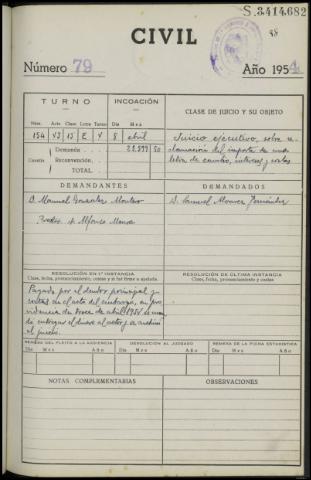 S.3414.682
48
CIVIL
Número 79
Año 1954
TURNO
INCOACIÓN
CLASE DE JUICIO Y SU OBJETO
Núm. Art. Clase Letra Turno Día Mes
154 43 13 E V 8 abril
Juicio ejecutivo, sobre re-
clamación del importe de una
letra de cambio, intereses y costas
Cuantía
Demanda
Reconvención
TOTAL
DEMANDANTES
DEMANDADOS
D. Manuel Gonzalez Montero
D. Samuel Alvarez Fernández
Alfonso
RESOLUCIÓN EN 1.ª INSTANCIA
Clase, fecha, pronunciamiento, costas y si fué firme o apelada.
RESOLUCIÓN DE ÚLTIMA INSTANCIA
Clase, fecha, pronunciamiento y costas
Pagado por el deudor principal y
costas en el acto del embargo, en pro
videncia de trece de abril 1954 se man
da entregar el dinero al actor y a archivar
el juicio.
REMESA DEL PLEITO A LA AUDIENCIA
DEVOLUCIÓN AL JUZGADO
REMESA DE LA FICHA ESTADÍSTICA
Día Mes Año
Día Mes Año
Día Mes Año
NOTAS COMPLEMENTARIAS
OBSERVACIONES